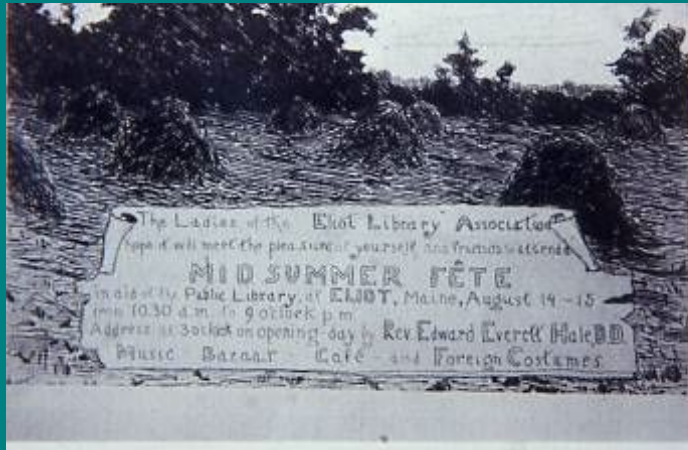 The Ladies of the Eliot Library Association
hope it will meet the pleasure of yourself and friends to attend a
MIDSUMMER FÊTE
in aid of the Public Library, at ELIOT, Maine, August 14-15
from 10.30 a.m. to 9 o'clock p.m.
Address at 3 o'clock on opening day by Rev. Edward Everett Hale D.D.
Music Bazaar Café and Foreign Costumes